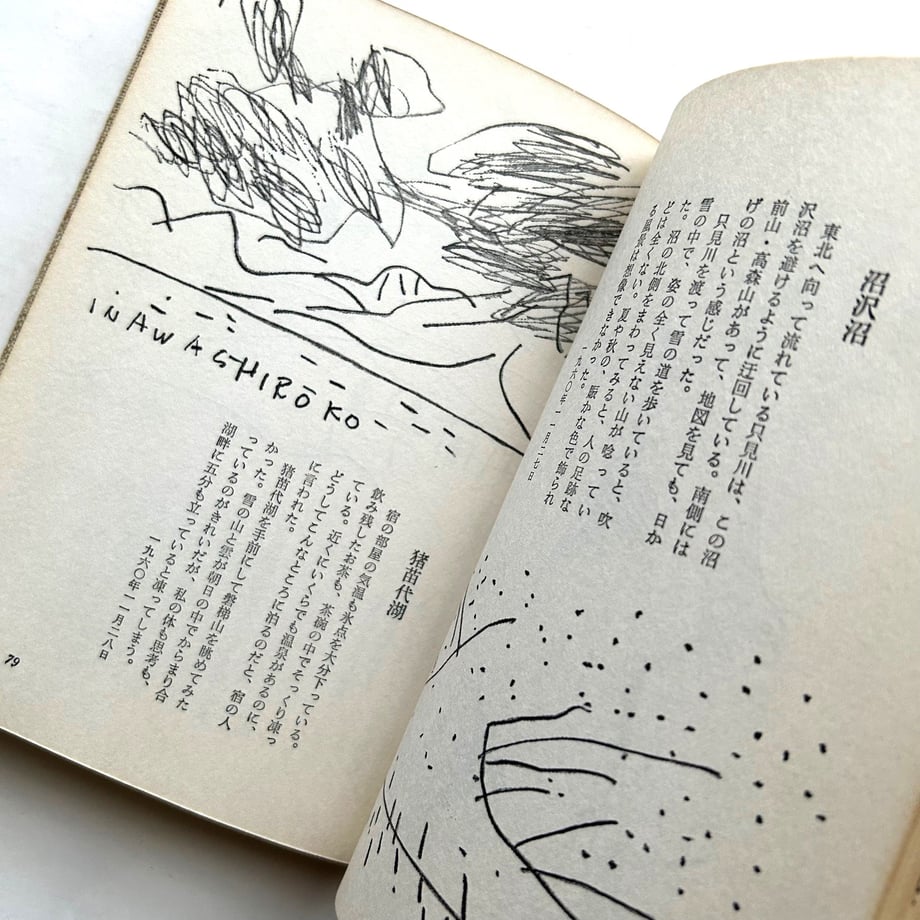 沼沢沼
東北へ向って流れている只見川は、この沼
沢沼を避けるように迂回している。南側には
前山・高森山があって、地図を見ても、日か
げの沼という感じだった。
只見川を渡って雪の道を歩いていると、吹
雪の中で、姿の全く見えない山が唸ってい
た。沼の北側をまわってみると、人の足跡な
どは全くない。夏や秋の、賑かな色で飾られ
る風景は想像できなかった。
一九六〇年一月二七日
INAWASHIROKO
猪苗代湖
宿の部屋の気温も氷点を大分下っている。
飲み残したお茶も、茶碗の中でそっくり凍っ
ている。近くにいくらでも温泉があるのに、
どうしてこんなところに泊るのだと、宿の人
に言われた。
猪苗代湖を手前にして磐梯山を眺めてみた
かった。雪の山と雲が朝日の中でからまり合
っているのがきれいだが、私の体も思考も、
湖畔に五分も立っていると凍ってしまう。
一九六〇年一月二八日
79